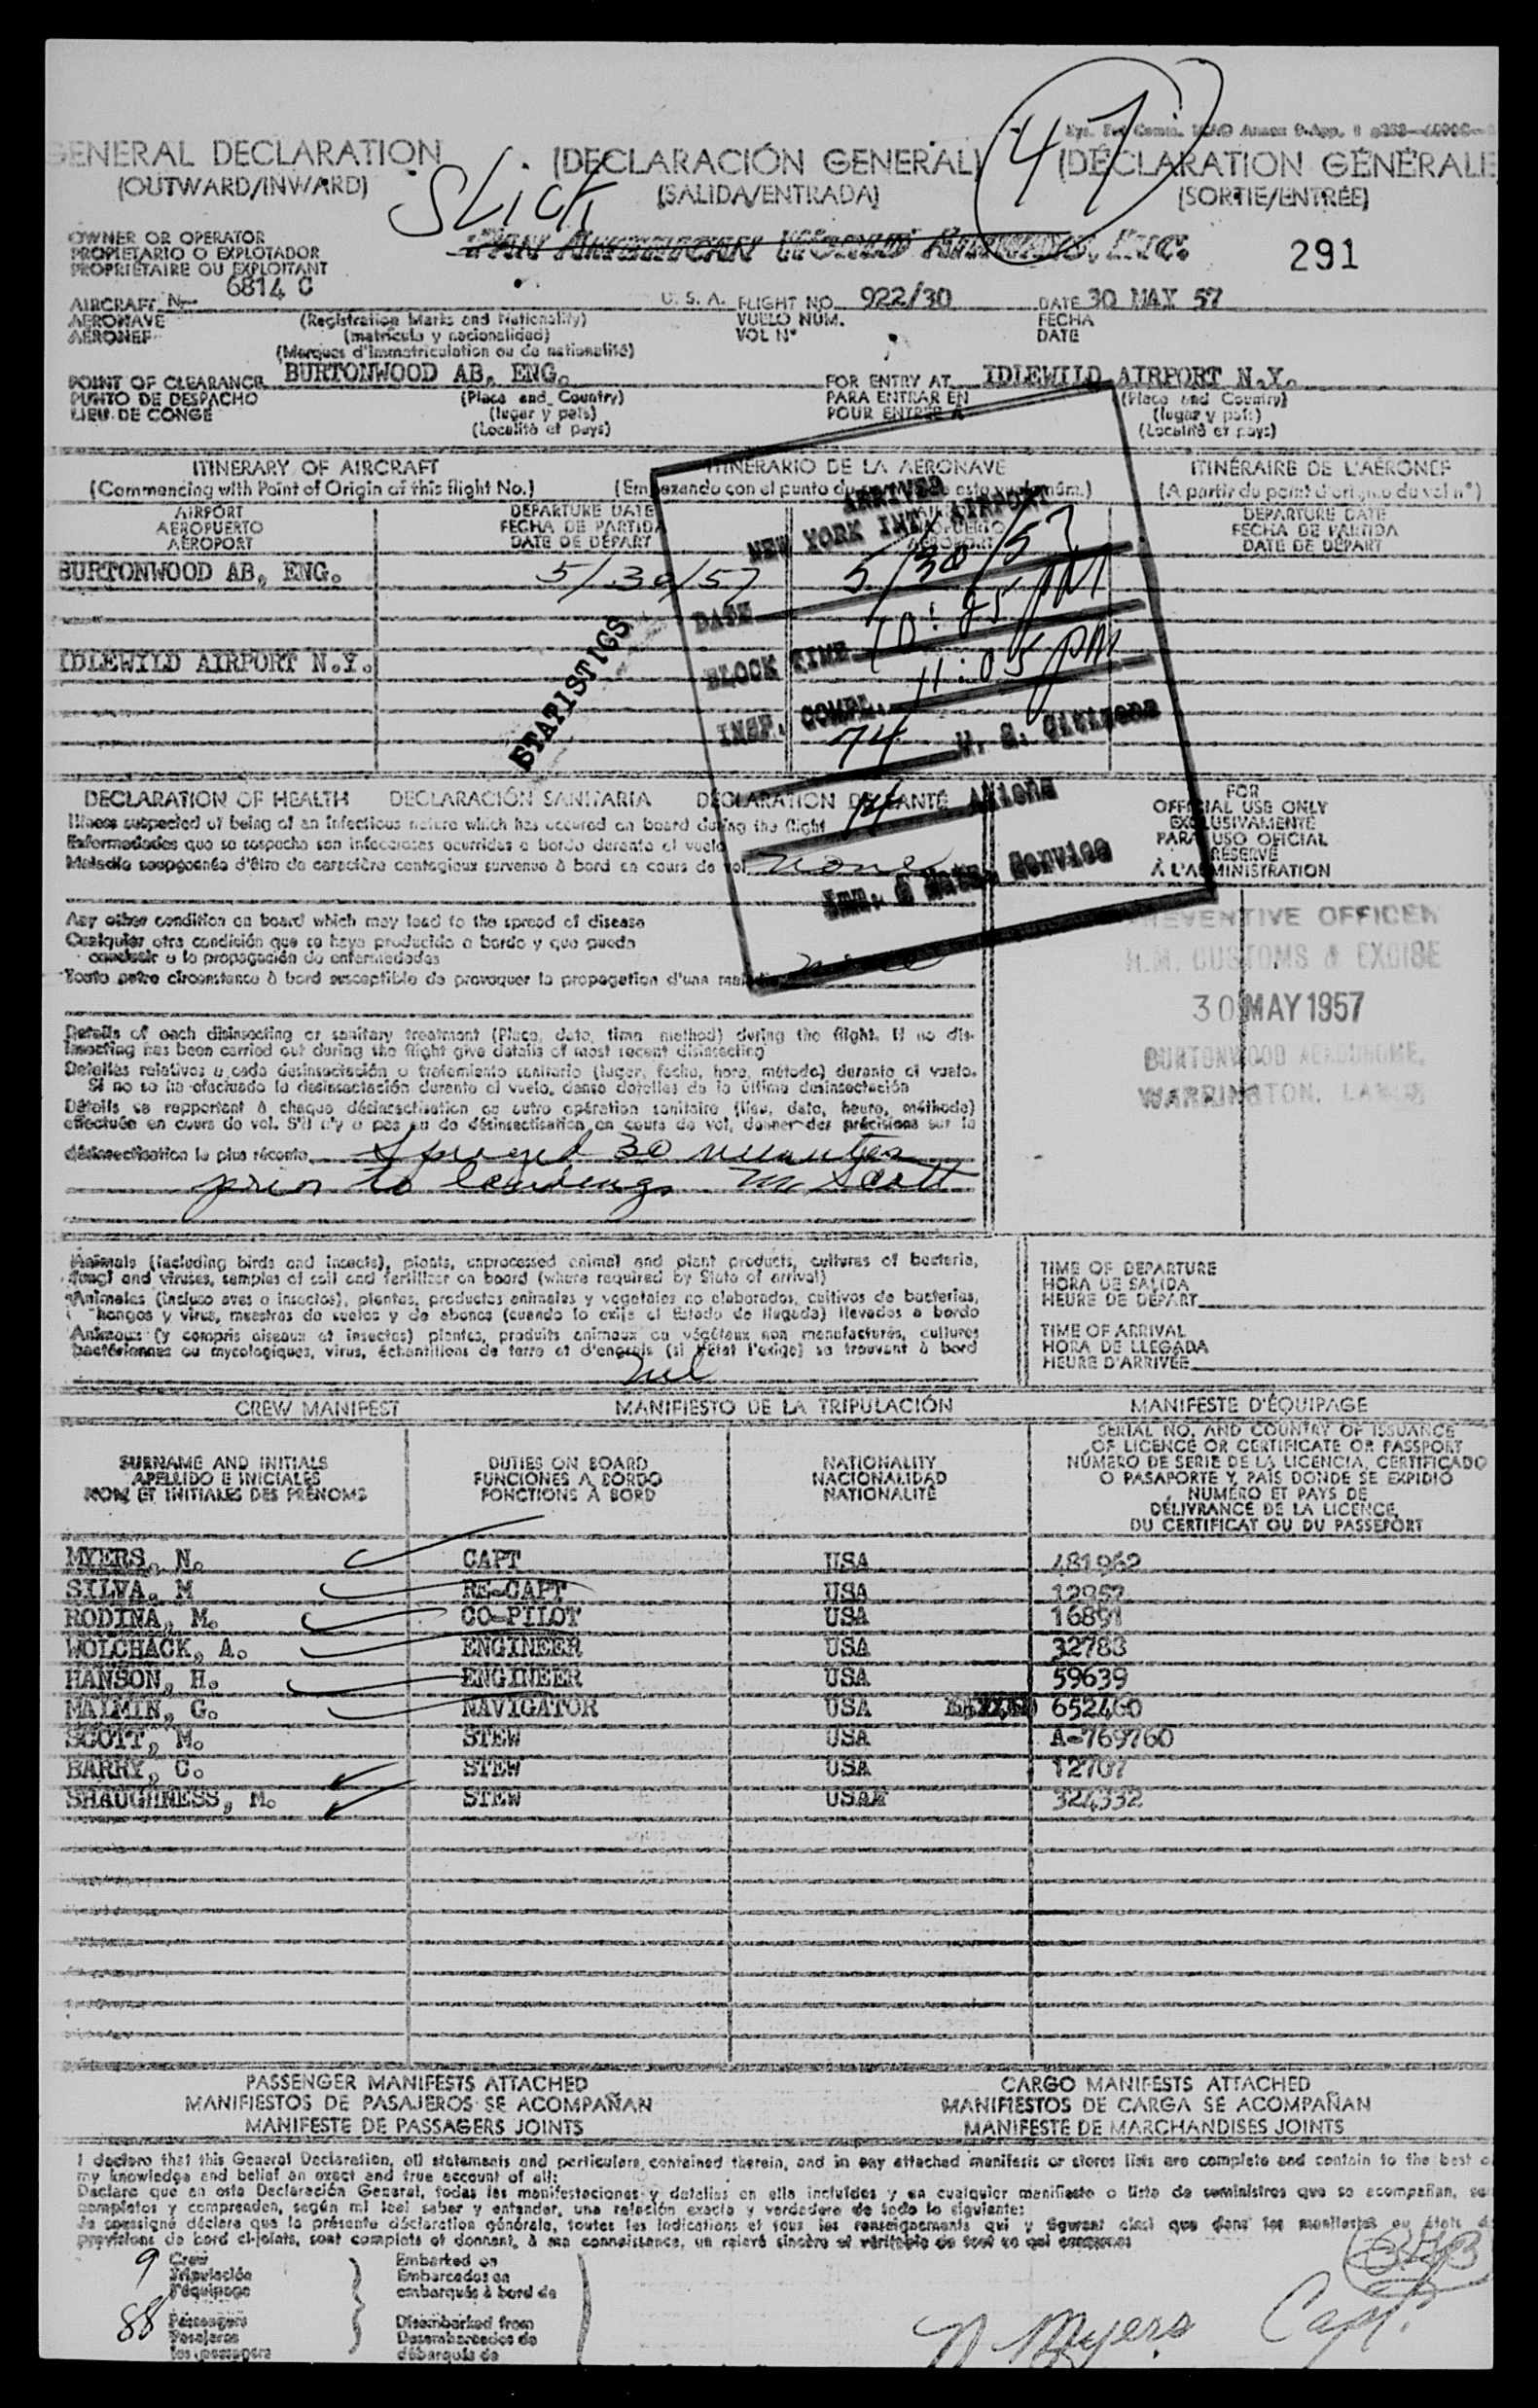 47
GENERAL DECLARATION (DECLARACIÓN GENERAL) (DÉCLARATION GÉNÉRALE
(OUTWARD/INWARD) (SALIDA/ENTRADA) (SORTIE/ENTRÉE)
Slick
OWNER OR OPERATOR
PROPIETARIO O EXPLOTADOR
PROPRIÉTAIRE OU EXPLOITANT
PAN AMERICAN WORLD AIRWAYS, INC.
291
AIRCRAFT N- 6814 C U. S. A. FLIGHT NO. 922/30 DATE 30 MAY 57
AERONAVE (Registration Marks and Nationality) VUELO NUM. FECHA
AÉRONEF (matrícula y nacionalidad) VOL N° DATE
(Marques d'immatriculation ou de nationalité)
POINT OF CLEARANCE BURTONWOOD AB, ENG. FOR ENTRY AT IDLEWILD AIRPORT N.Y.
PUNTO DE DESPACHO (Place and Country) PARA ENTRAR EN (Place and Country)
LIEU DE CONGÉ (lugar y país) POUR ENTRÉE À (lugar y país)
(Localité et pays) (Localité et pays)
ITINERARY OF AIRCRAFT ITINERARIO DE LA AERONAVE ITINÉRAIRE DE L'AÉRONEF
(Commencing with Point of Origin of this flight No.) (Empezando con el punto de este vuelo núm.) (A partir du point d'origine du vol n°)
AIRPORT DEPARTURE DATE DEPARTURE DATE
AEROPUERTO FECHA DE PARTIDA FECHA DE PARTIDA
AÉROPORT DATE DE DÉPART AÉROPORT DATE DE DÉPART
BURTONWOOD AB, ENG. 5/30/57
IDLEWILD AIRPORT N.Y.
STATISTICS
ARRIVED
NEW YORK INT. AIRPORT
DATE 5/30/57
BLOCK TIME 10:25 PM
INSP. COMPL. 11:05 PM
74 U. S. Citizens
14 Aliens
Imm. & Natz. Service
DECLARATION OF HEALTH DECLARACIÓN SANITARIA DÉCLARATION DE SANTÉ
Illness suspected of being of an infectious nature which has occured on board during the flight
Enfermedades que se sospecha son infecciosas ocurridas a bordo durante el vuelo
Maladie soupçonnée d'être de caractère contagieux survenue à bord en cours de vol none
Any other condition on board which may lead to the spread of disease
Cualquier otra condición que se haya producido a bordo y que pueda
conducir a la propagación de enfermedades
Toute autre circonstance à bord susceptible de provoquer la propagation d'une maladie none
Details of each disinsecting or sanitary treatment (Place, date, time method) during the flight. If no dis-
insecting has been carried out during the flight give details of most recent disinsecting
Detalles relativos a cada desinsectación o tratamiento sanitario (lugar, fecha, hora, método) durante el vuelo.
Si no se ha efectuado la desinsectación durante el vuelo, danse detalles de la última desinsectación
Détails se rapportent à chaque désinsectisation ou autre opération sanitaire (lieu, date, heure, méthode)
effectuée en cours de vol. S'il n'y a pas eu de désinsectisation en cours de vol, donner des précisions sur la
désinsectisation la plus récente. Sprayed 30 minutes
prior to landing. M Scott
FOR
OFFICIAL USE ONLY
EXCLUSIVAMENTE
PARA USO OFICIAL
RÉSERVÉ
À L'ADMINISTRATION
PREVENTIVE OFFICER
H.M. CUSTOMS & EXCISE
30 MAY 1957
BURTONWOOD AERODROME,
WARRINGTON. LANCS
Animals (including birds and insects), plants, unprocessed animal and plant products, cultures of bacteria,
fungi and viruses, samples of soil and fertilizer on board (where required by State of arrival)
Animales (incluso aves o insectos), plantas, productos animales y vegetales no elaborados, cultivos de bacterias,
hongos y virus, muestras de suelos y de abonos (cuando lo exija el Estado de llegada) llevados a bordo
Animaux (y compris oiseaux et insectes) plantes, produits animaux ou végétaux non manufacturés, cultures
bactériennes ou mycologiques, virus, échantillons de terre et d'engrais (si l'État l'exige) se trouvant à bord
nil
TIME OF DEPARTURE
HORA DE SALIDA
HEURE DE DÉPART
TIME OF ARRIVAL
HORA DE LLEGADA
HEURE D'ARRIVÉE
CREW MANIFEST MANIFIESTO DE LA TRIPULACIÓN MANIFESTE D'ÉQUIPAGE
SURNAME AND INITIALS
APELLIDO E INICIALES
NOM ET INITIALES DES PRÉNOMS
DUTIES ON BOARD
FUNCIONES A BORDO
FONCTIONS À BORD
NATIONALITY
NACIONALIDAD
NATIONALITÉ
SERIAL NO. AND COUNTRY OF ISSUANCE
OF LICENCE OR CERTIFICATE OR PASSPORT
NÚMERO DE SERIE DE LA LICENCIA, CERTIFICADO
O PASAPORTE Y PAÍS DONDE SE EXPIDIÓ
NUMÉRO ET PAYS DE
DÉLIVRANCE DE LA LICENCE,
DU CERTIFICAT OU DU PASSEPORT
MYERS, N. CAPT USA 481962
SILVA, M RE-CAPT USA 12952
RODINA, M. CO-PILOT USA 16891
WOLCHACK, A. ENGINEER USA 32783
HANSON, H. ENGINEER USA 59639
MALMIN, G. NAVIGATOR USA 652460
SCOTT, M. STEW USA A-769760
BARRY, C. STEW USA 12707
SHAUGHNESS, M. STEW USA 324332
PASSENGER MANIFESTS ATTACHED CARGO MANIFESTS ATTACHED
MANIFIESTOS DE PASAJEROS SE ACOMPAÑAN MANIFIESTOS DE CARGA SE ACOMPAÑAN
MANIFESTE DE PASSAGERS JOINTS MANIFESTE DE MARCHANDISES JOINTS
I declare that this General Declaration, all statements and particulars contained therein, and in any attached manifests or stores lists are complete and contain to the best o
my knowledge and belief an exact and true account of all:
Declaro que en esta Declaración General, todas las manifestaciones y detalles en ella incluídos y en cualquier manifiesto o lista de suministros que se acompañan, son
completos y comprenden, según mi leal saber y entender, una relación exacta y verdadera de todo lo siguiente:
Je soussigné déclare que la présente déclaration générale, toutes les indications et tous les renseignements qui y figurent ainsi que dans les manifestes ou états d
provisions de bord ci-joints, sont complets et donnent, à ma connaissance, un relevé sincère et véritable de tout ce qui concerne:
9 Crew Embarked on
Tripulación Embarcados en
l'équipage embarqués à bord de
88 Passengers Disembarked from
Pasajeros Desembarcados de
les passagers débarqués de
N Myers Capt.